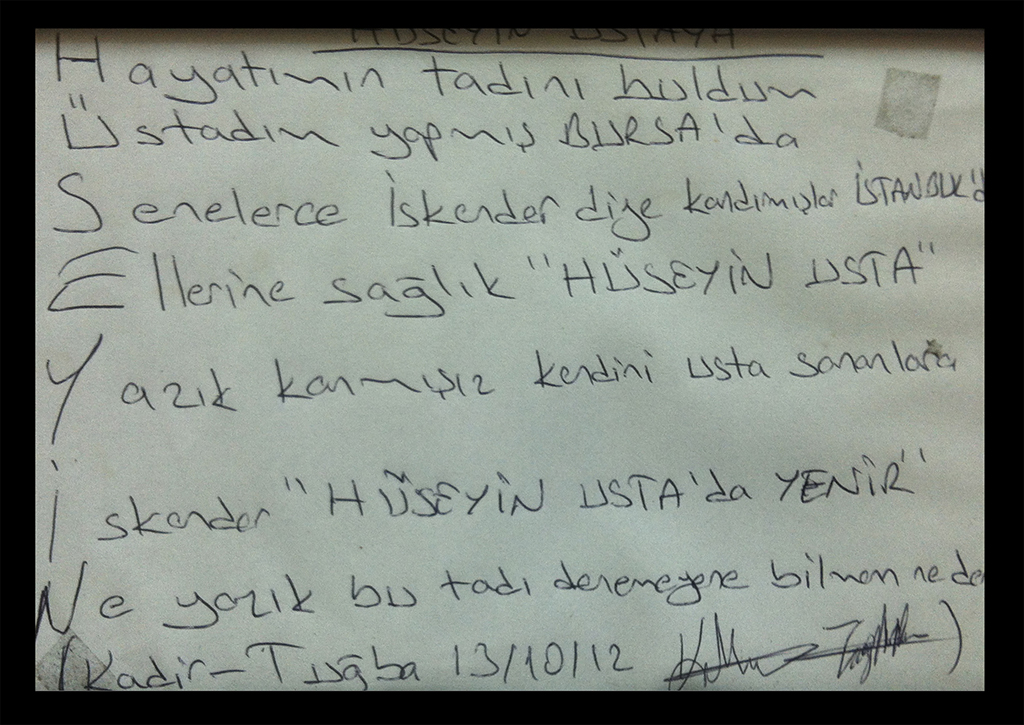 HÜSEYİN USTAYA
Hayatımın tadını buldum
Üstadım yapmış BURSA'da
Senelerce İskender diye kandımışlar İSTANBUL'd
Ellerine sağlık "HÜSEYİN USTA"
Yazık kanmışız kendini usta sananlara
İskender "HÜSEYİN USTA'da YENİR"
Ne yazık bu tadı denemeyene bilmem ne de
(Kadir-Tuğba 13/10/12 )